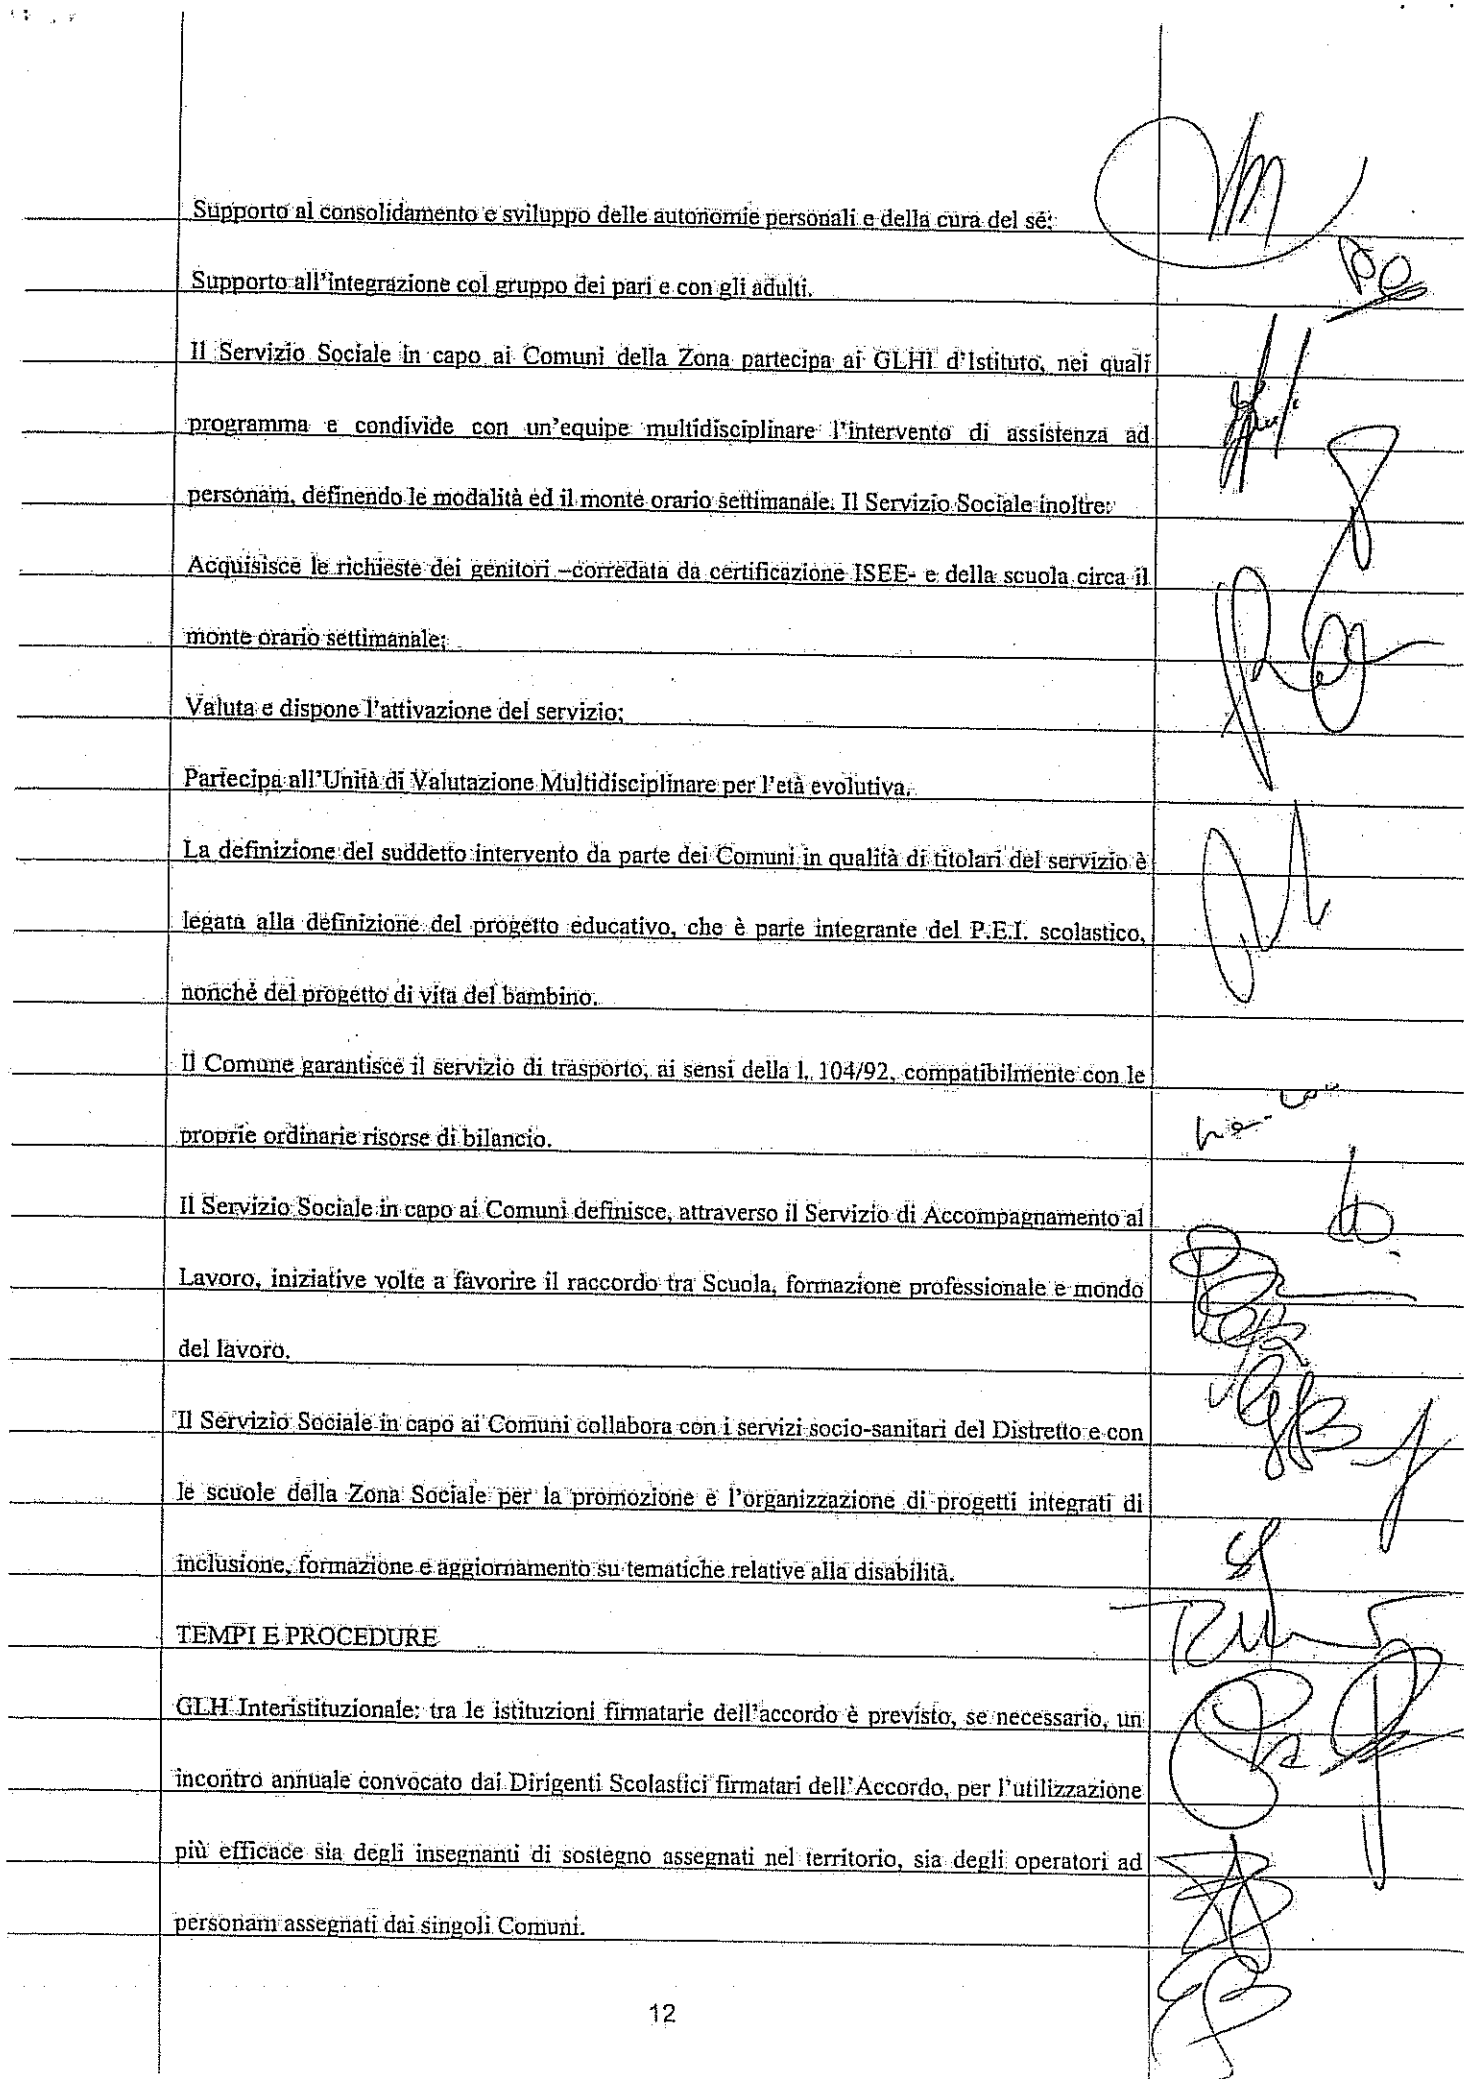 Supporto al consolidamento e sviluppo delle autonomie personali e della cura del sé;
Supporto all'integrazione col gruppo dei pari e con gli adulti.
Il Servizio Sociale in capo ai Comuni della Zona partecipa ai GLHI d'Istituto, nei quali
programma e condivide con un'equipe multidisciplinare l'intervento di assistenza ad
personam, definendo le modalità ed il monte orario settimanale. Il Servizio Sociale inoltre:
Acquisisce le richieste dei genitori –corredata da certificazione ISEE- e della scuola circa il
monte orario settimanale;
Valuta e dispone l'attivazione del servizio;
Partecipa all'Unità di Valutazione Multidisciplinare per l'età evolutiva.
La definizione del suddetto intervento da parte dei Comuni in qualità di titolari del servizio è
legata alla definizione del progetto educativo, che è parte integrante del P.E.I. scolastico,
nonché del progetto di vita del bambino.
Il Comune garantisce il servizio di trasporto, ai sensi della l. 104/92, compatibilmente con le
proprie ordinarie risorse di bilancio.
Il Servizio Sociale in capo ai Comuni definisce, attraverso il Servizio di Accompagnamento al
Lavoro, iniziative volte a favorire il raccordo tra Scuola, formazione professionale e mondo
del lavoro.
Il Servizio Sociale in capo ai Comuni collabora con i servizi socio-sanitari del Distretto e con
le scuole della Zona Sociale per la promozione e l'organizzazione di progetti integrati di
inclusione, formazione e aggiornamento su tematiche relative alla disabilità.
TEMPI E PROCEDURE
GLH Interistituzionale: tra le istituzioni firmatarie dell'accordo è previsto, se necessario, un
incontro annuale convocato dai Dirigenti Scolastici firmatari dell'Accordo, per l'utilizzazione
più efficace sia degli insegnanti di sostegno assegnati nel territorio, sia degli operatori ad
personam assegnati dai singoli Comuni.
12